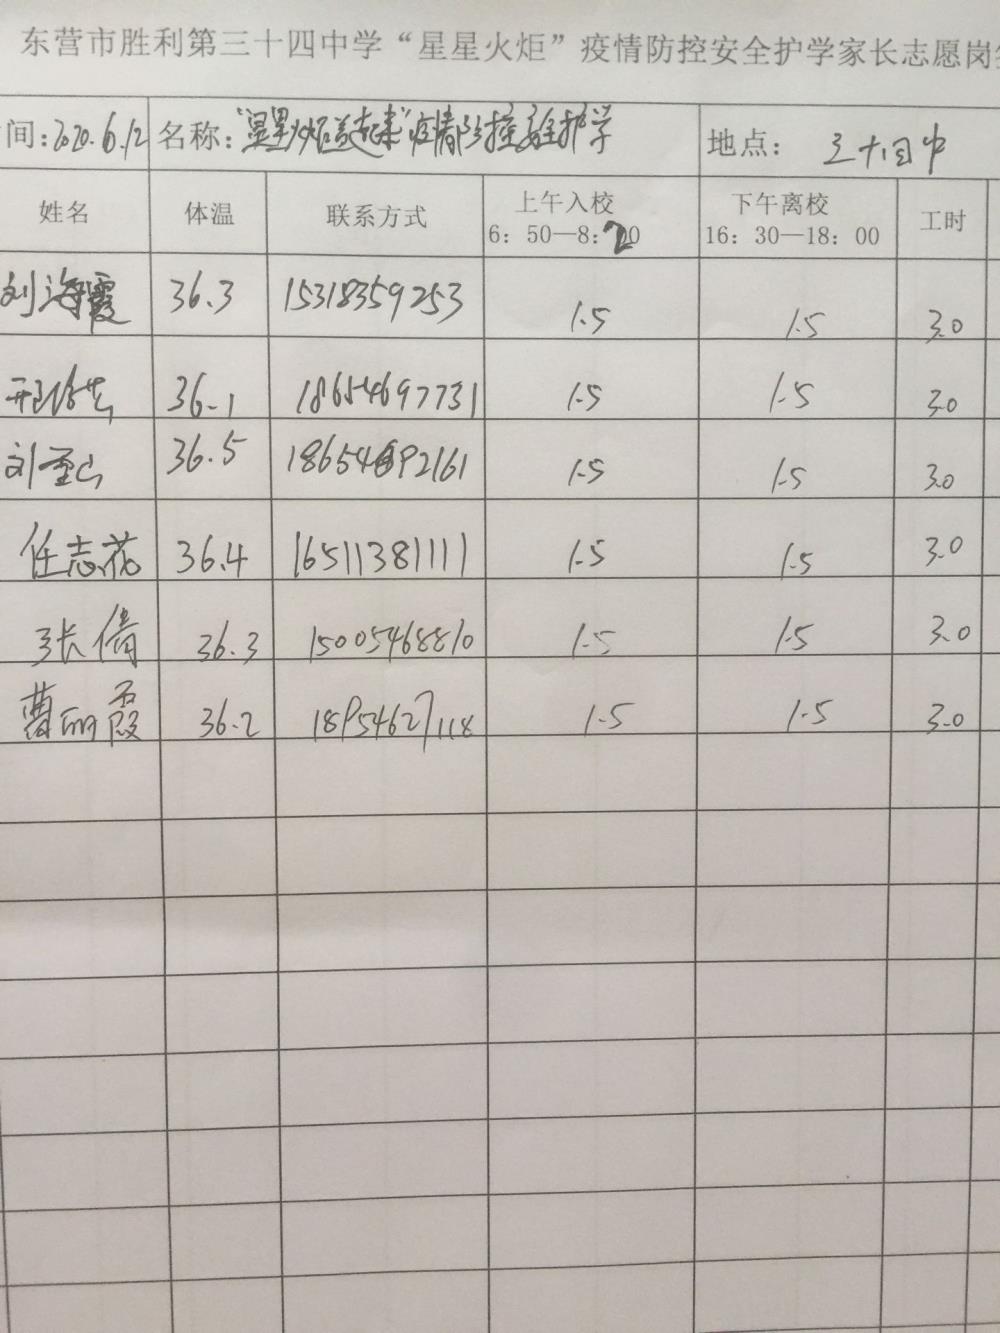 东营市胜利第三十四中学“星星火炬”疫情防控安全护学家长志愿岗
间:2020.6.12 名称:“星星火炬 起来”疫情防控安全护学 地点: 三十四中
姓名 体温 联系方式 上午入校 下午离校 工时
6: 50—8:20 16: 30—18: 00
刘海霞 36.3 15318359253 1.5 1.5 3.0
邢 36.1 18654697731 1.5 1.5 3.0
刘 36.5 18654692161 1.5 1.5 3.0
任志花 36.4 16511381111 1.5 1.5 3.0
张倩 36.3 15005468810 1.5 1.5 3.0
曹丽霞 36.2 18954627118 1.5 1.5 3.0